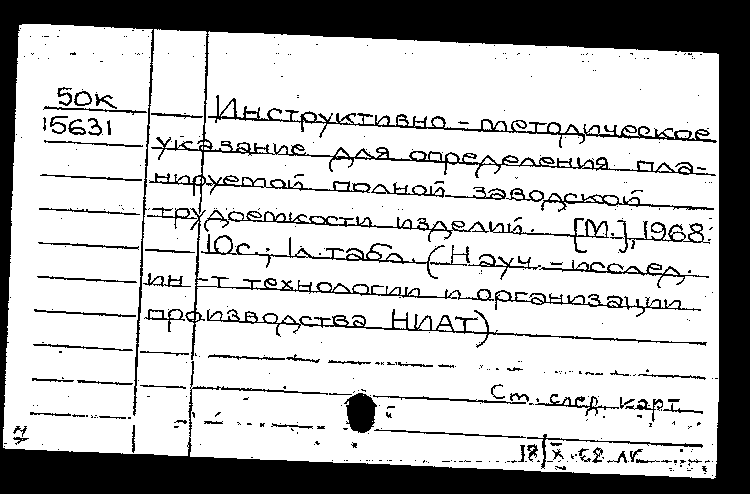 50К
15631
Инструктивно-методическое
указание для определения пла-
нируемой полной заводской
трудоемкости изделий. [М.], 1968.
10с.; 1л.табл. (Науч.-исслед.
ин-т технологии и организации
производства НИАТ)
Ст. след. карт.
18/X-68 лк